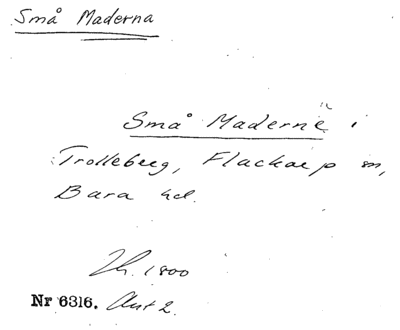 Små Maderna
Små Maderne i
Trolleberg, Flackarp sn,
Bara hd.
1800
Nr 6316. Akt 2.